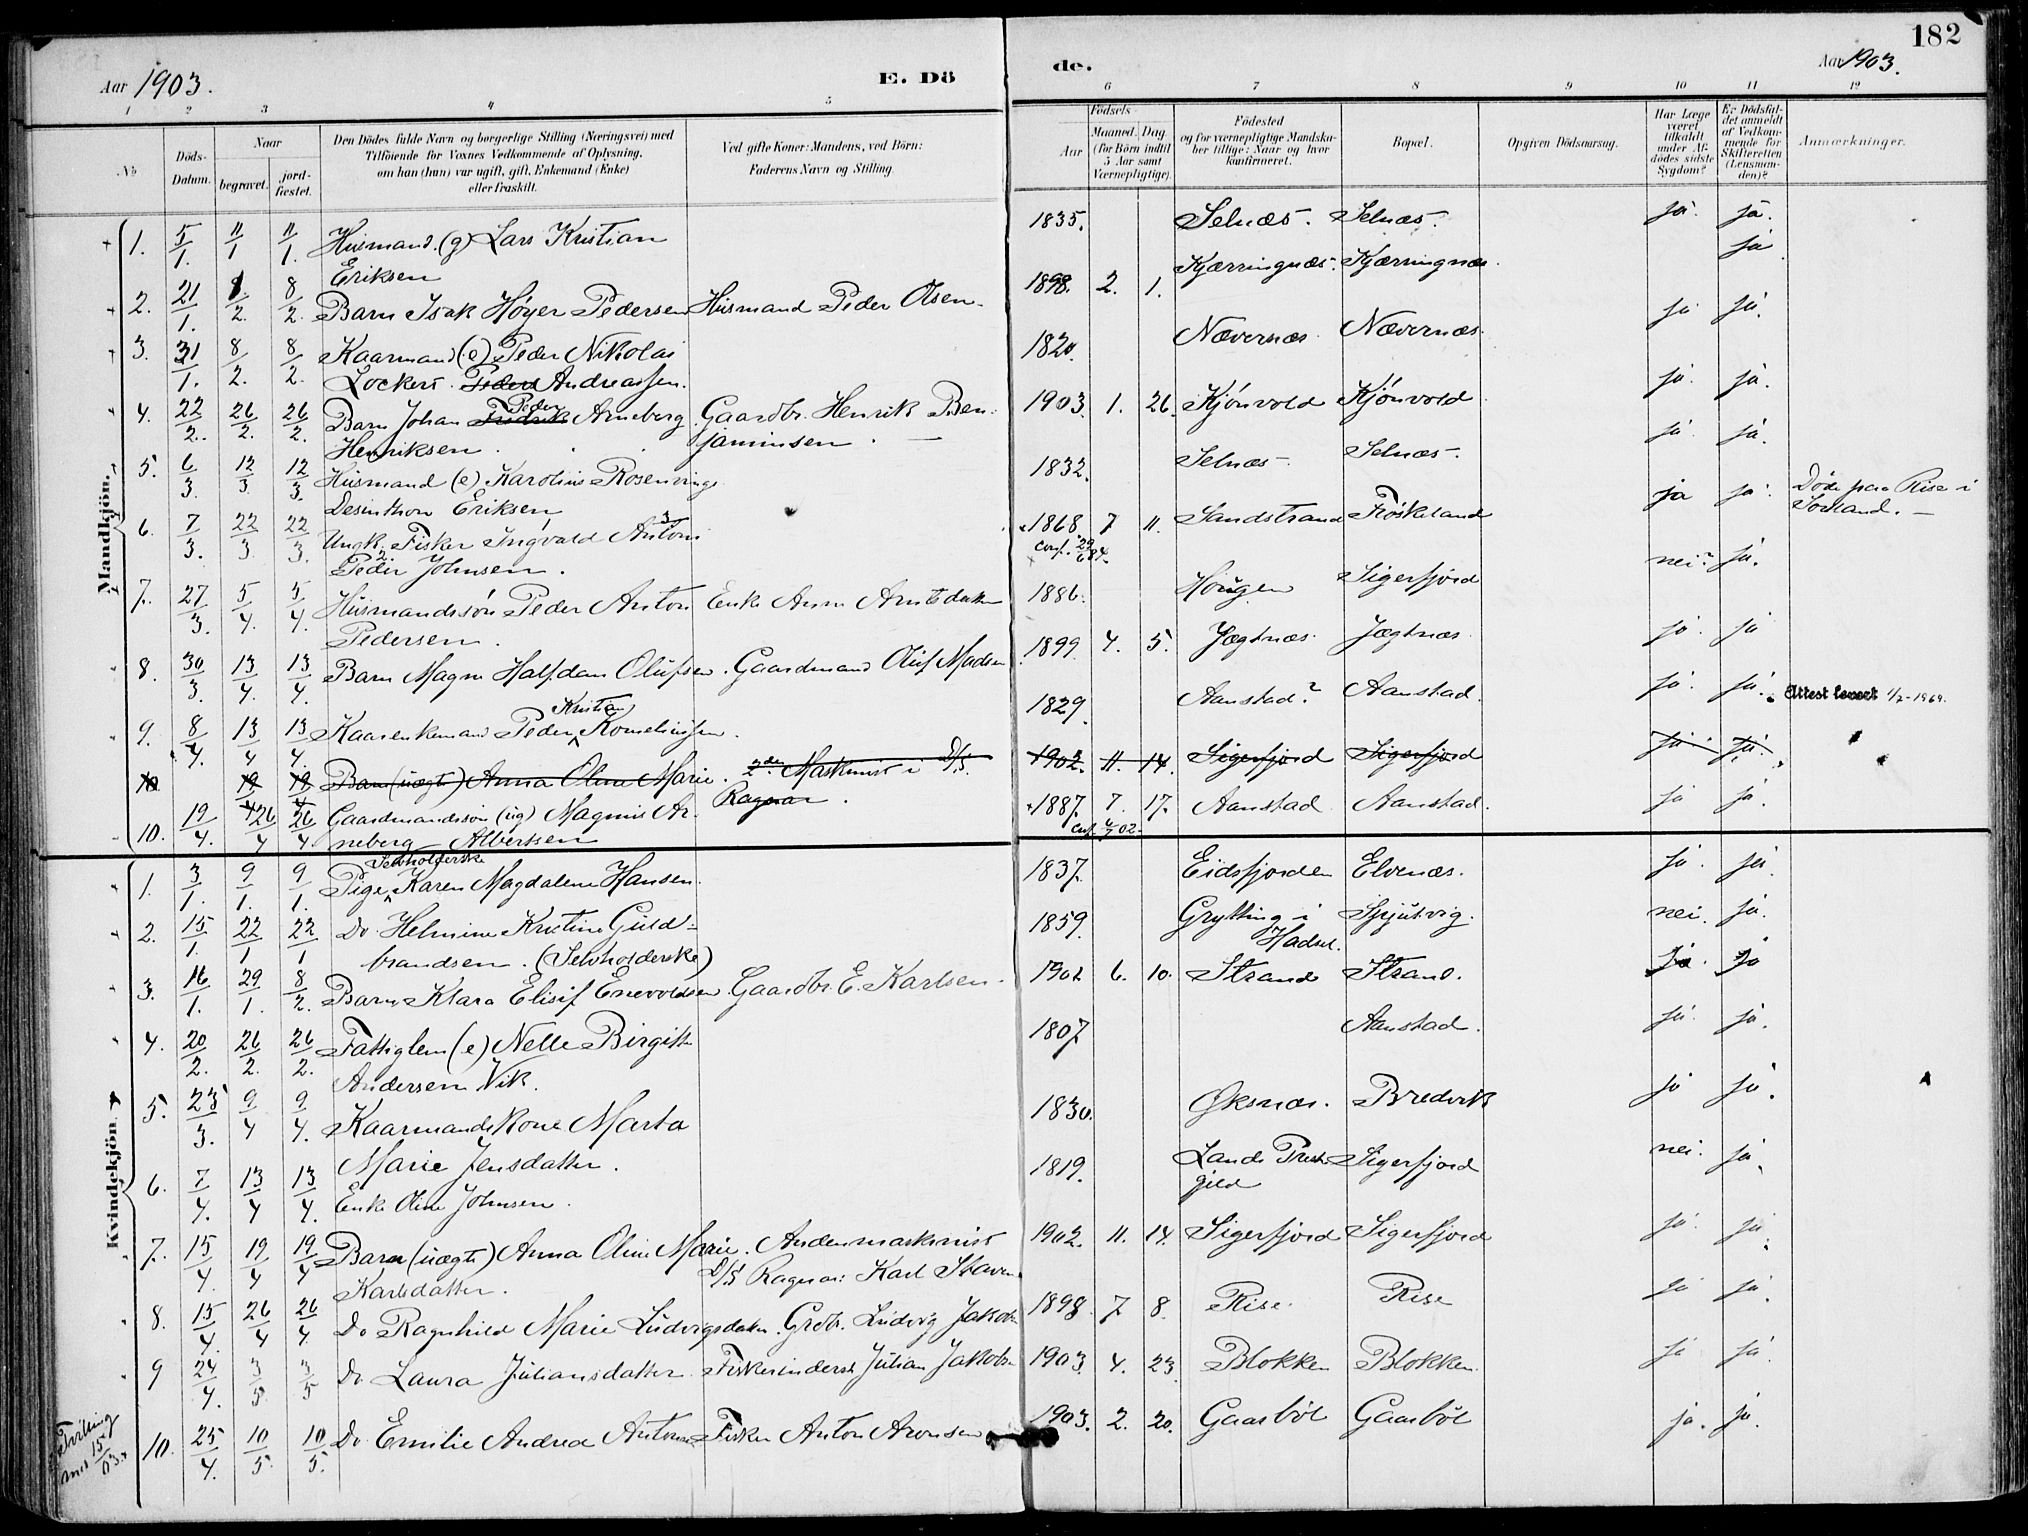 182
Aar 1903.
E. Dö
de.
Aar 1903.
1 2 3 4 5
6 7 8 9 10 11 12
No
Döds-Datum.
Naar
begravet.
jord-fæstet.
Den Dödes fulde Navn og borgerlige Stilling (Næringsvei) med
Tilföiende for Voxnes Vedkommende af Oplysning,
om han (hun) var ugift, gift, Enkemand (Enke)
eller fraskilt.
Ved gifte Koner: Mandens, ved Börn:
Faderens Navn og Stilling.
Födsels
Aar
Maaned.
Dag.
(for Börn indtil
5 Aar samt
Værnepligtige).
Födested
og for værnepligtige Mandska-
ber tillige: Naar og hvor
konfirmeret.
Bopæl.
Opgiven Dödsaarsag.
Har Læge
været
tilkaldt
under Af-
dödes sidste
Sygdom?
Er Dödsfal-
det anmeldt
af Vedkom-
mende for
Skifteretten
(Lensman-
den)?
Anmærkninger.
Mandkjön.
1. 5/1. 11/1 11/1. Husmand (g) Lars Kristian 1835. Selnæs. Selnæs. ja. ja.
Eriksen
2. 21/1. 8/2. 8/2. Barn Isak Høyer Pedersen Husmand Peder Olsen. 1898. 2. 1. Kjærringnæs. Kjærringnæs. ja
3. 31/1. 8/2. 8/2. Kaarmand (e) Peder Nikolai 1820. Nævernæs. Nævernæs. ja ja.
Lockert. Peder Andreassen.
4. 22/2. 26/2. 26/2. Barn Johan Fredrik Peder Arneberg Gaardbr. Henrik Ben- 1903. 1. 26. Kjónvold Kjónvold ja. ja.
Henriksen. jaminsen.
5. 6/3. 12/3 12/3. Husmand (e) Karolius Rosenving 1832. Selnæs. Selnæs. ja. ja.
Desinthon Eriksen
6. 7/3. 22/3. 22/3. Ungk. Fisker Ingvald Anton 1868 7 11. Sandstrand Frøskeland ja ja. Døde paa Rise i
Peder Johnsen. Conf. 29/6 84. Sortland.
7. 27/3. 5/4. 5/4. Husmandssøn Peder Anton Enke Anne Arntsdatter 1886. Hougen Sigerfjord nei? ja.
Pedersen.
8. 30/3. 13/4. 13/4. Barn Magne Halfdan Olufsen. Gaardmand Oluf Madsen 1899. 4. 5. Jægtnæs. Jægtnæs. ja. ja
9. 8/4. 13/4 13/4. Kaarenkemand Peder Kristian Korneliussen. 1829. Aanstad? Aanstad. ja. ja. Attest levert 1/7-1964.
10 19/4 19/4 Barn (uægte) Anna Oline Marie. 2den Maskinist i D/S. 1902. 11. 14. Sigerfjord Sigerfjord ja. ja.
Ragnar.
10. 19/4. 26/4 26/4. Gaardmandssøn (ug) Magnus Ar- 1887. 7. 17. Aanstad Aanstad. ja ja.
neberg Albertsen Conf. 02.
Kvindekjön.
1. 3/1. 9/1. 9/1. Pige Selvholderske Karen Magdalene Hansen. 1837. Eidsfjorden Elvenæs. ja. ja.
2. 15/1. 22/1 22/1 Do Helmine Kristine Guld- 1859. Grytting i Spjutvig. nei. ja.
brandsen. (Selvholderske) Hadsel.
3. 16/1. 29/1. 8/2. Barn Klara Elisif Enevoldsen Gaardbr. E. Karlsen. 1902 6. 10. Strand Strand. ja. ja
4. 20/2. 26/2. 26/2. Fattiglem (e) Nelle Birgitte 1807 Aanstad. ja. ja.
Andersen Vik.
5. 23/3. 9/4 9/4. Kaarmandskone Marta 1830. Øksnæs. Bredvik ja ja.
Marie Jensdatter.
6. 7/4. 13/4 13/4. Enke Oline Johnsen. 1819. Lands Præste- Sigerfjord nei. ja.
gjeld
7. 15/4. 19/4 19/4 Barn (uægte) Anna Oline Marie. Andenmaskinist 1902. 11. 14. Sigerfjord Sigerfjord ja. ja.
Karlsdatter. D/S Ragnar: Karl
8. 15/4. 26/4 26/4 Do Ragnhild Marie Ludvigsdatter. Grdbr. Ludvig Jakobsen 1898. 7. 8. Rise. Rise ja ja.
9 24/4. 3/5 3/5 Do Laura Juliansdatter. Julian Jakobsen 1903. 4. 23. Blokken Blokken. ja ja.
10. 25/4. 10/5. 10/5. Do Emilie Andrea Fisker Anton Aronsen 1903. 2. 20. Gaasbøl Gaasbøl ja. ja.
Tvilling
med 15/03.